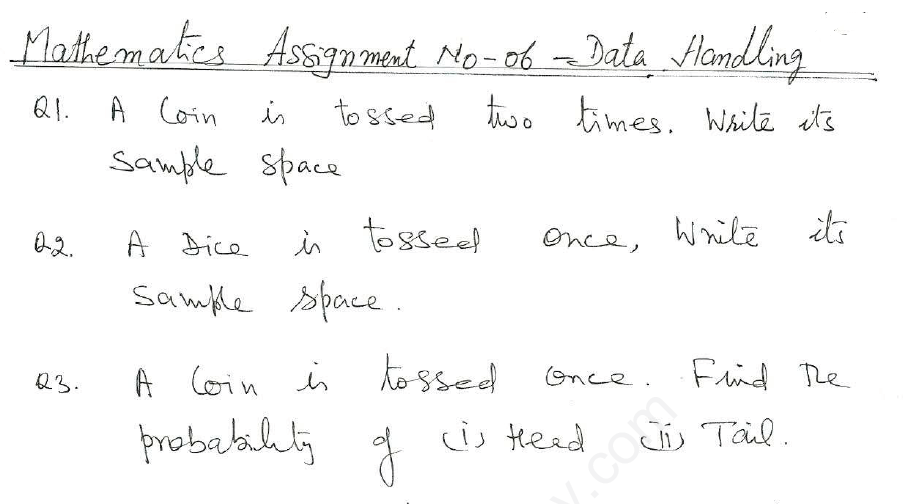 Mathematics Assignment No-06 - Data Handling
Q1. A Coin is tossed two times. Write its
Sample space
Q2. A Dice is tossed once, Write its
Sample space.
Q3. A Coin is tossed once. Find the
probability of (i) Head (ii) Tail.
.com